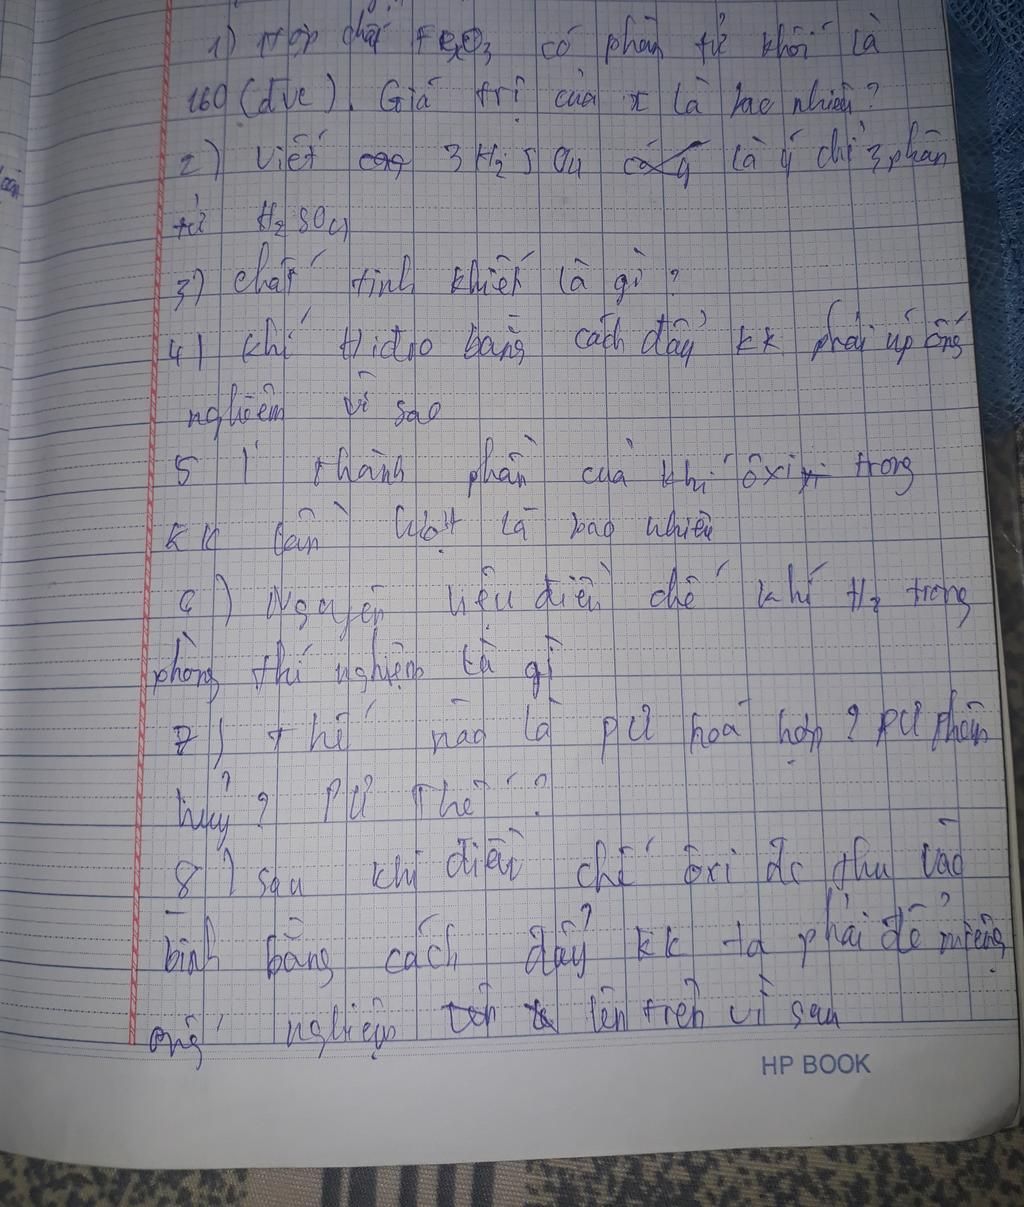 1) Hợp chất FexO3 có phân tử khối là
160 (đvc). Giá trị của x là bao nhiêu?
2) Viết 3 H2SO4 là ý chỉ 3 phân
tử H2SO4
3) chất tinh khiết là gì?
4) khí Hidro bằng cách đẩy kk phải úp ống
nghiệm vì sao
5) thành phần của khí ôxi trong
kk lần lượt là bao nhiêu
6) Nguyên liệu điều chế khí H2 trong
phòng thí nghiệm là gì
7) Thế nào là PƯ hoá hợp? PƯ phân
huỷ? PƯ Thế?
8) sau khi điều chế ôxi đc thu vào
bình bằng cách đẩy kk ta phải để miệng
ống nghiệm lên trên vì sau
HP BOOK